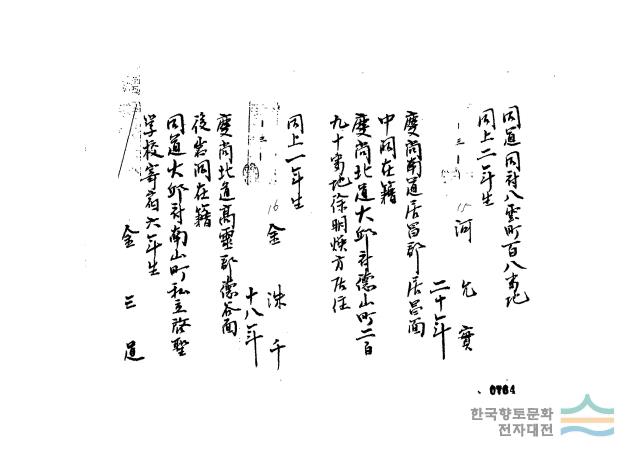 同道同府八雲町百八番地
同上二年生
河 允 實
二十年
慶尚南道居昌郡居昌面
中洞在籍
慶尚北道大邱府德山町二百
九十番地徐明煥方居住
同上一年生
16 金 洙 千
十八年
慶尚北道高靈郡德谷面
後岩洞在籍
同道大邱府南山町私立啓聖
学校寄宿六年生
金 三 道
0764
한국향토문화
전자대전